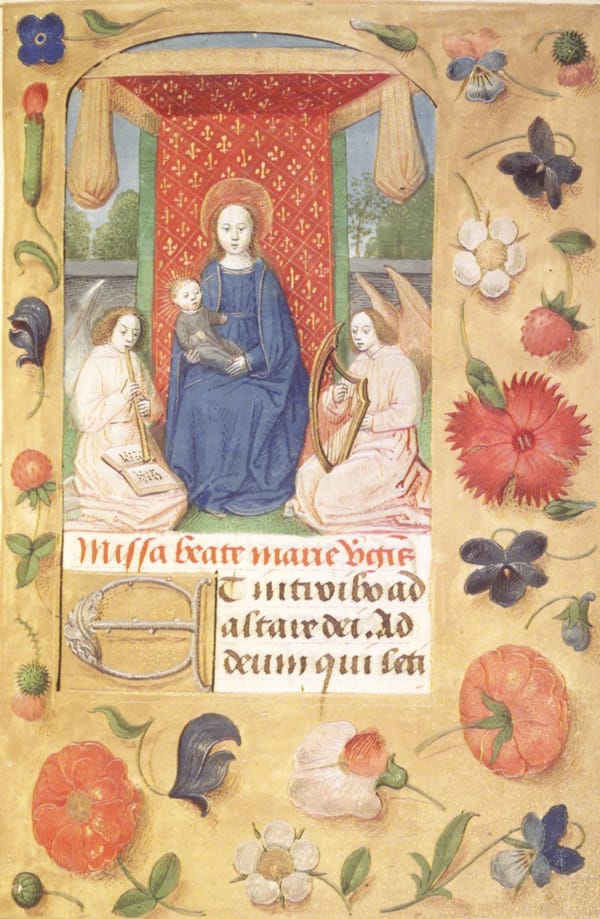 Missa beate marie Vgis
ET introibo ad
altare dei. Ad
deum qui leti